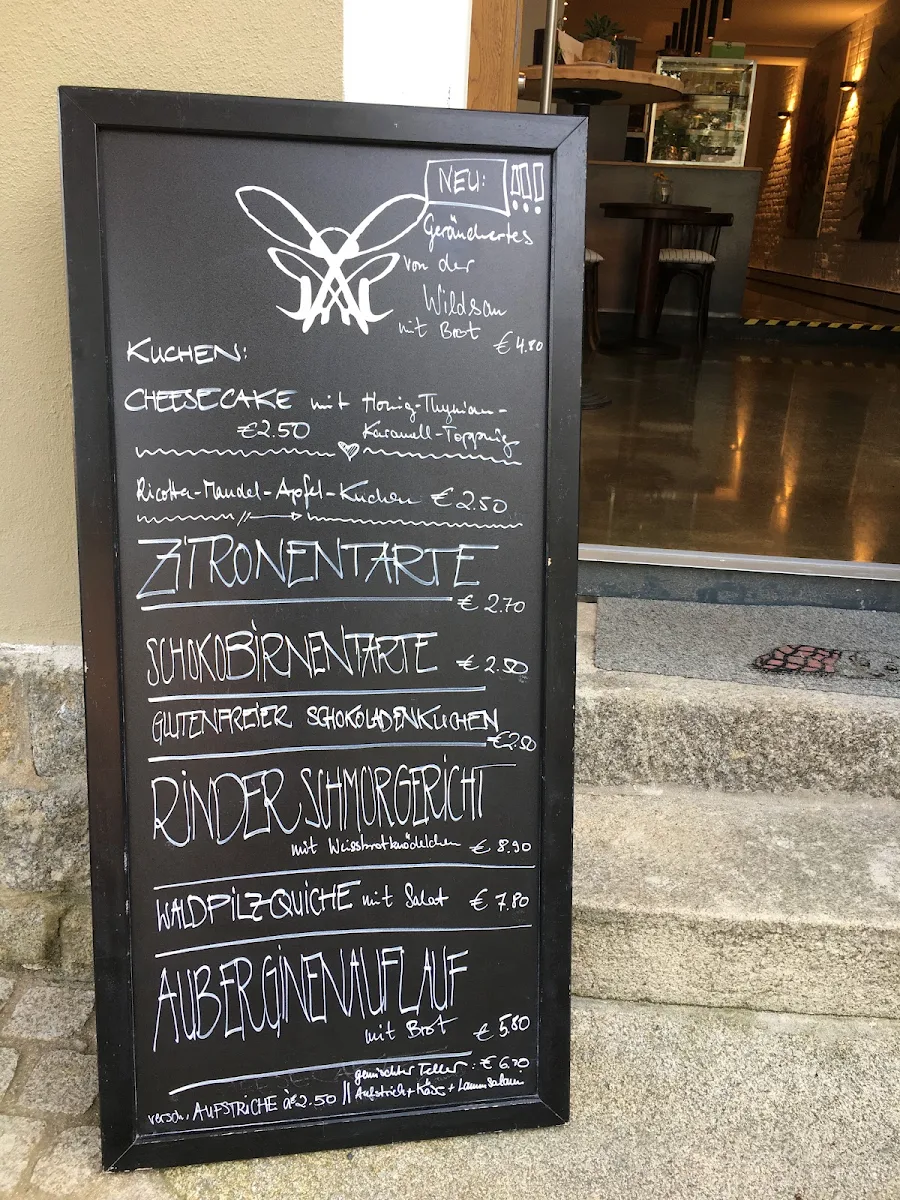 NEU: !!!
Geräuchertes
von der
Wildsau
mit Brot
€ 4.80
KUCHEN:
CHEESECAKE mit Honig-Thymian-
€2.50 Karamell-Topping
Ricotta-Mandel-Apfel-Kuchen €2.50
ZITRONENTARTE
€ 2.70
SCHOKOBIRNENTARTE € 2.50
GLUTENFREIER SCHOKOLADENKUCHEN
€2.50
RINDERSCHMORGERICHT
mit Weissbrotknödelchen € 8.90
WALDPILZ-QUICHE mit Salat € 7.80
AUBERGINENAUFLAUF
mit Brot € 5.80
gemischter Teller: €
versch. AUFSTRICHE à €2.50 || Aufstrich + Käse + Lammsalami